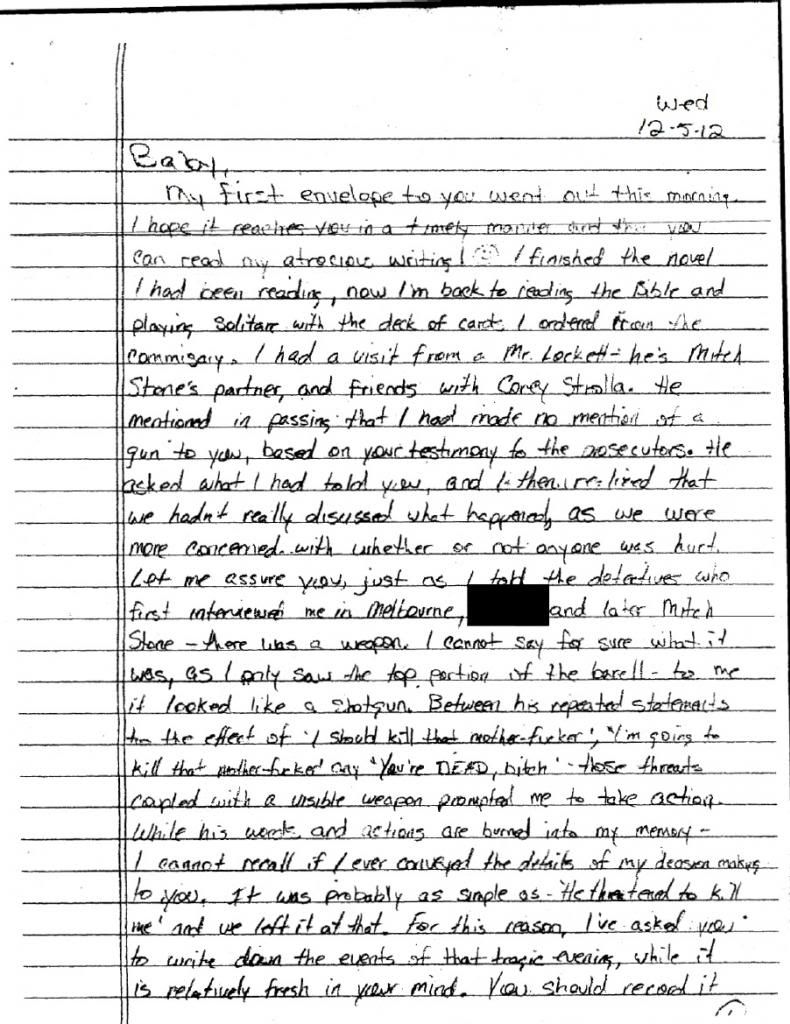 Wed
12-5-12
Baby,
My first envelope to you went out this morning.
I hope it reaches you in a timely manner and that you
can read my atrocious writing! I finished the novel
I had been reading, now I'm back to reading the Bible and
playing Solitare with the deck of cards I ordered from the
commisary. I had a visit from a Mr. Lockett - he's Mitch
Stone's partner, and friends with Corey Strolla. He
mentioned in passing that I had made no mention of a
gun to you, based on your testimony to the prosecutors. He
asked what I had told you, and I then realized that
we hadn't really discussed what happened, as we were
more concerned with whether or not anyone was hurt.
Let me assure you, just as I told the detectives who
first interviewed me in Melbourne, and later Mitch
Stone - there was a weapon. I cannot say for sure what it
was, as I only saw the top portion of the barell - to me
it looked like a shotgun. Between his repeated statements
to the effect of 'I should kill that mother-fucker', 'I'm going to
kill that mother-fucker' any 'You're DEAD, bitch' - those threats
coupled with a visible weapon prompted me to take action.
While his words and actions are burned into my memory -
I cannot recall if I ever conveyed the details of my decision making
to you. It was probably as simple as - 'He threatened to kill
me' and we left it at that. For this reason, I've asked you
to write down the events of that tragic evening, while it
is relatively fresh in your mind. You should record it
1